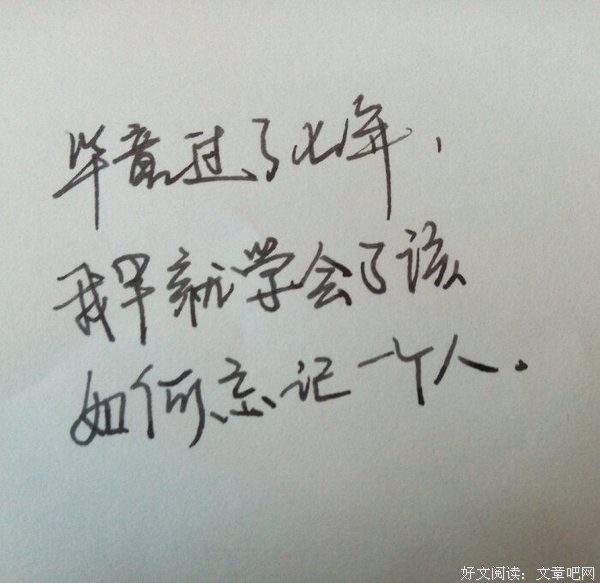 毕竟过了七年，
我早就学会了该
如何忘记一个人.
好文阅读：文章吧网